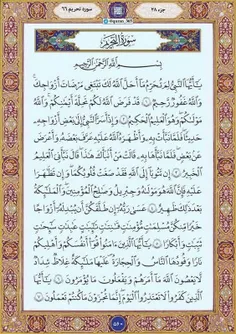 جزء ۲۸
سوره تحریم ۶۶
سُورَةُ التَّحْرِيمِ
بِسْمِ ٱللَّهِ ٱلرَّحْمَٰنِ ٱلرَّحِيمِ
يَٰٓأَيُّهَا ٱلنَّبِىُّ لِمَ تُحَرِّمُ مَآ أَحَلَّ ٱللَّهُ لَكَ تَبْتَغِى مَرْضَاتَ أَزْوَٰجِكَ
وَٱللَّهُ غَفُورٌ رَّحِيمٌ ١ قَدْ فَرَضَ ٱللَّهُ لَكُمْ تَحِلَّةَ أَيْمَٰنِكُمْ وَٱللَّهُ
مَوْلَىٰكُمْ وَهُوَ ٱلْعَلِيمُ ٱلْحَكِيمُ ٢ وَإِذْ أَسَرَّ ٱلنَّبِىُّ إِلَىٰ بَعْضِ أَزْوَٰجِهِۦ
حَدِيثًا فَلَمَّا نَبَّأَتْ بِهِۦ وَأَظْهَرَهُ ٱللَّهُ عَلَيْهِ عَرَّفَ بَعْضَهُۥ وَأَعْرَضَ
عَنۢ بَعْضٍ فَلَمَّا نَبَّأَهَا بِهِۦ قَالَتْ مَنْ أَنۢبَأَكَ هَٰذَا قَالَ نَبَّأَنِىَ ٱلْعَلِيمُ
ٱلْخَبِيرُ ٣ إِن تَتُوبَآ إِلَى ٱللَّهِ فَقَدْ صَغَتْ قُلُوبُكُمَا وَإِن تَظَٰهَرَا
عَلَيْهِ فَإِنَّ ٱللَّهَ هُوَ مَوْلَىٰهُ وَجِبْرِيلُ وَصَٰلِحُ ٱلْمُؤْمِنِينَ وَٱلْمَلَٰٓئِكَةُ
بَعْدَ ذَٰلِكَ ظَهِيرٌ ٤ عَسَىٰ رَبُّهُۥٓ إِن طَلَّقَكُنَّ أَن يُبْدِلَهُۥٓ أَزْوَٰجًا
خَيْرًا مِّنكُنَّ مُسْلِمَٰتٍ مُّؤْمِنَٰتٍ قَٰنِتَٰتٍ تَٰٓئِبَٰتٍ عَٰبِدَٰتٍ سَٰٓئِحَٰتٍ
ثَيِّبَٰتٍ وَأَبْكَارًا ٥ يَٰٓأَيُّهَا ٱلَّذِينَ ءَامَنُوا۟ قُوٓا۟ أَنفُسَكُمْ وَأَهْلِيكُمْ
نَارًا وَقُودُهَا ٱلنَّاسُ وَٱلْحِجَارَةُ عَلَيْهَا مَلَٰٓئِكَةٌ غِلَاظٌ شِدَادٌ
لَّا يَعْصُونَ ٱللَّهَ مَآ أَمَرَهُمْ وَيَفْعَلُونَ مَا يُؤْمَرُونَ ٦ يَٰٓأَيُّهَا
ٱلَّذِينَ كَفَرُوا۟ لَا تَعْتَذِرُوا۟ ٱلْيَوْمَ إِنَّمَا تُجْزَوْنَ مَا كُنتُمْ تَعْمَلُونَ ٧
٥٦٠